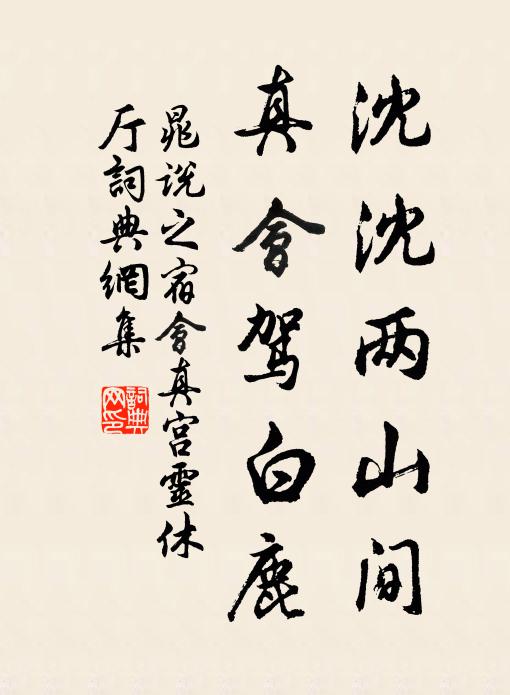 沈沈两山间
真會驾白鹿
晁说之宿會真宫靈休
厅詞典網集
詞典
网印